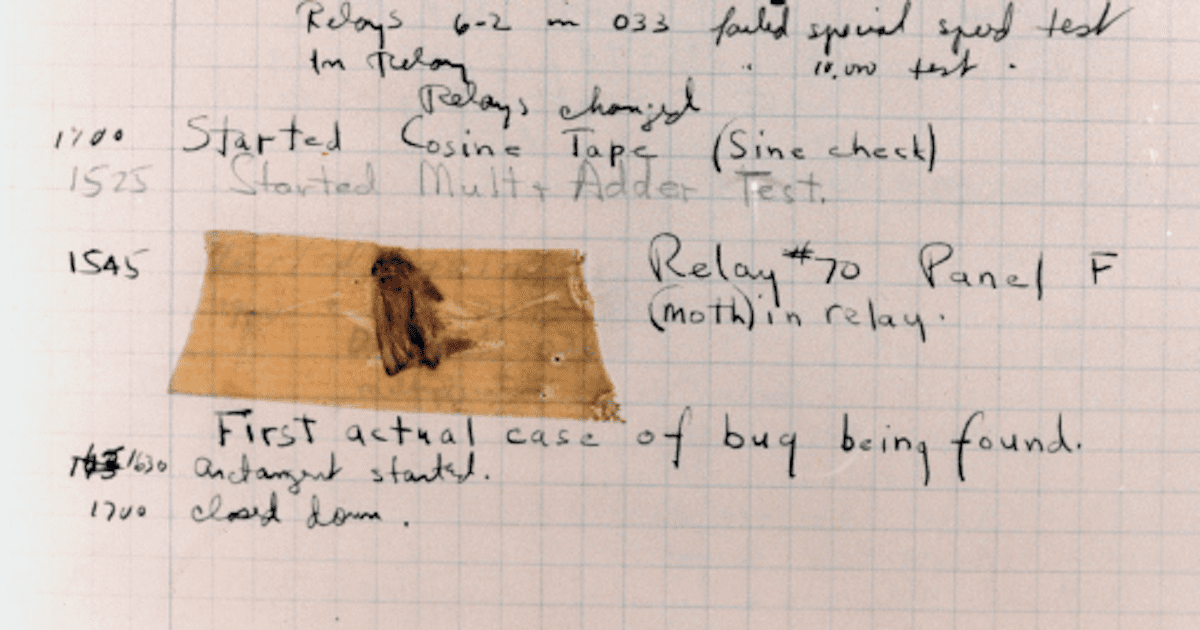 Relays 6-2 in 033 failed special speed test
In Relay " 10,000 test .
Relays changed
1700 Started Cosine Tape (Sine check)
1525 Started Mult + Adder Test.
1545 Relay #70 Panel F
(moth) in relay.
First actual case of bug being found.
1630 arctangent started.
1700 closed down .